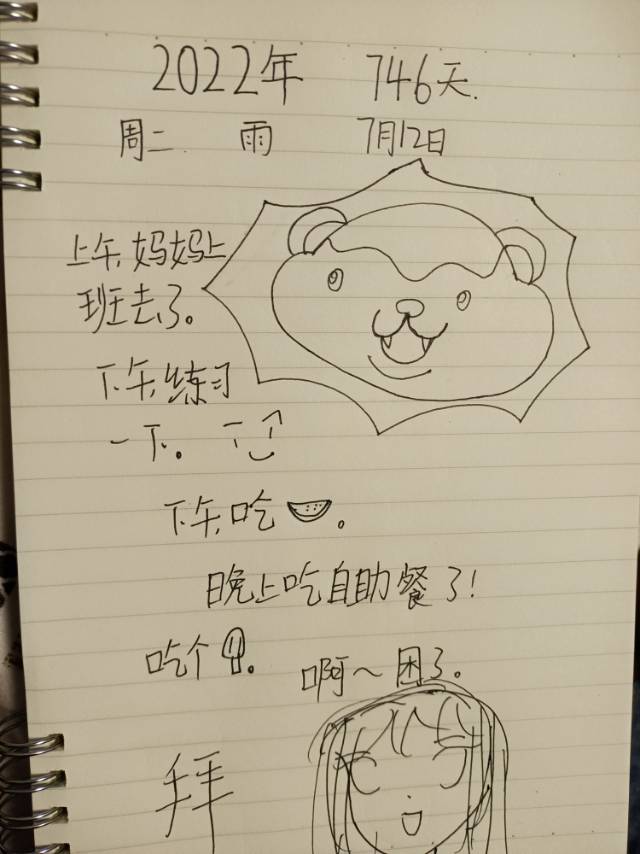 2022年 746天.
周二 雨 7月12日
上午,妈妈上
班去了。
下午,练习
一下。
下午,吃。
晚上吃自助餐了!
吃个。
啊~困了。
拜